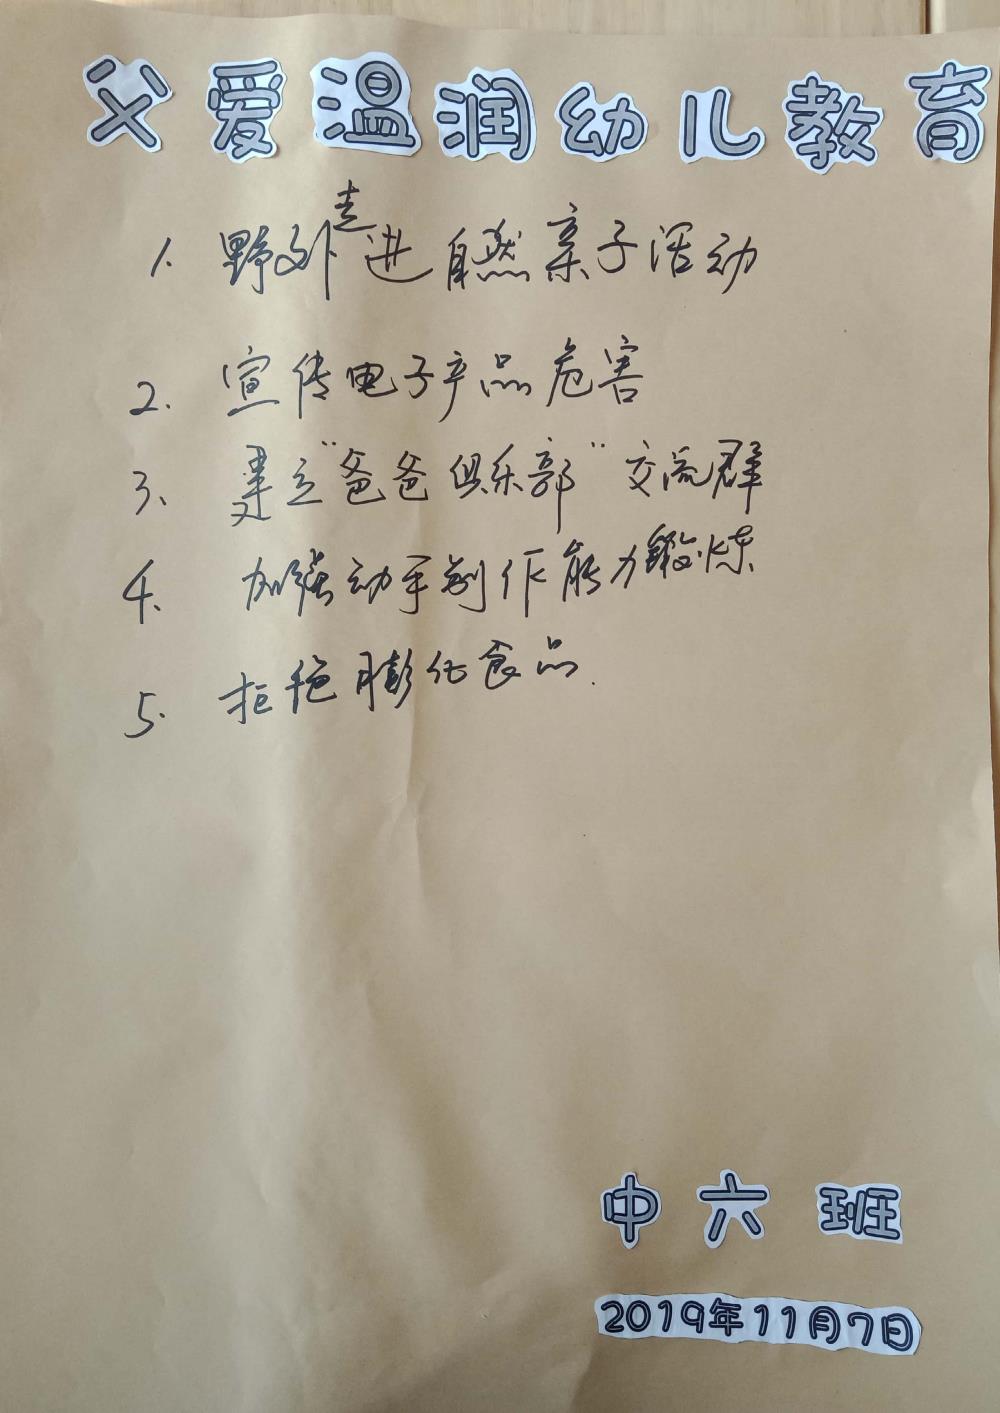 父爱温润幼儿教育
1. 野外走进自然亲子活动
2. 宣传电子产品危害
3、建立“爸爸俱乐部”交流群
4. 加强动手制作能力锻炼
5. 拒绝膨化食品.
中六班
2019年11月7日